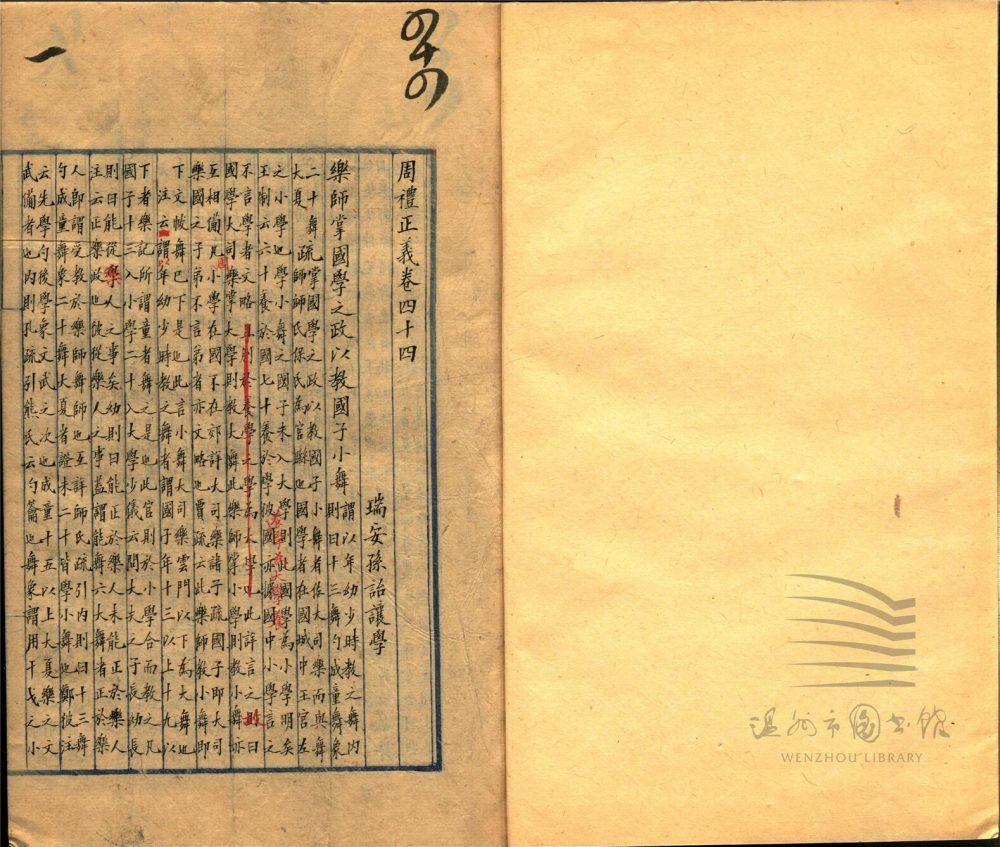 四十四
一
周禮正義卷四十四
瑞安孫詒讓學
樂師掌國學之政以教國子小舞
謂以年幼少時教之舞內
則曰十三舞勺成童舞象
二十舞
大夏
疏掌國學之政以教國子小舞者佐大司樂而與舞
師師氏保氏為官聯也國學者在國城中王宮左
之小學也學小舞之國子未入大學則此國學為小學明矣
王制云六十養於國七十養於學彼國亦據國中小學言之
不言學者文略也此詳言之則曰
國學大司樂掌大學則教大舞此樂師掌小學則教小舞亦
互相備凡小學在國不在郊詳大司樂諸子疏國子即大司
樂國之子弟不言弟者亦文略也賈疏云此樂師教小舞即
下文帗舞已下是也此言小舞大司樂雲門以下為大舞也
注云謂以年幼少時教之舞者謂國子年十三以上十九以
下者樂記所謂童者舞之是也此官則於小學合而教之凡
國子十三入小學二十入大學少儀云問大夫之子長幼長
則曰能從樂人之事矣幼則曰能正於樂人未能正於樂人
注云正樂政也徒從樂人之事蓋謂能舞六大舞者正於樂
人即謂受教於樂師舞師也互詳師氏疏引內則曰十三舞
勺成童舞象二十舞大夏者證未二十皆學小舞也鄭彼注
云先學勺後學象文武之次也成童十五以上大夏樂之文
武備者也內則孔疏引熊氏云勺籥也舞象謂用干戈之小
温州市圖书馆
WENZHOU LIBRARY